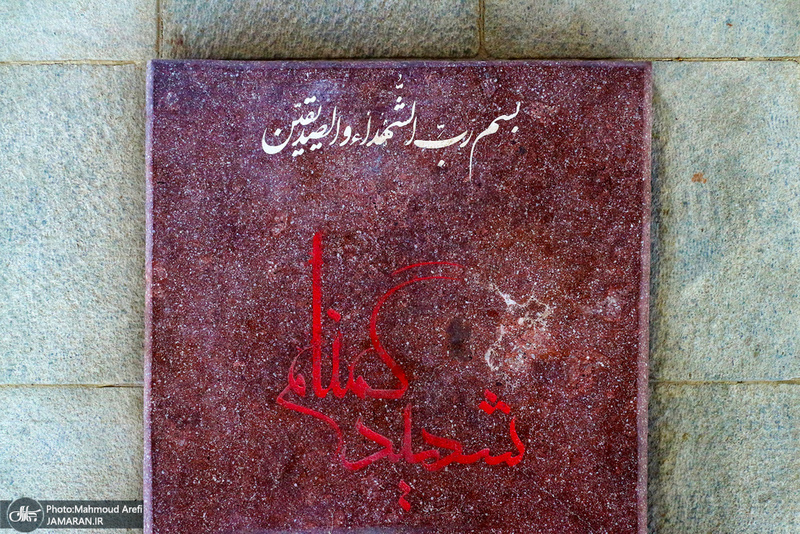 بسم ربّ الشّهداء و الصدیقین
شهید
گمنام
Photo:Mahmoud Arefi
JAMARAN.IR